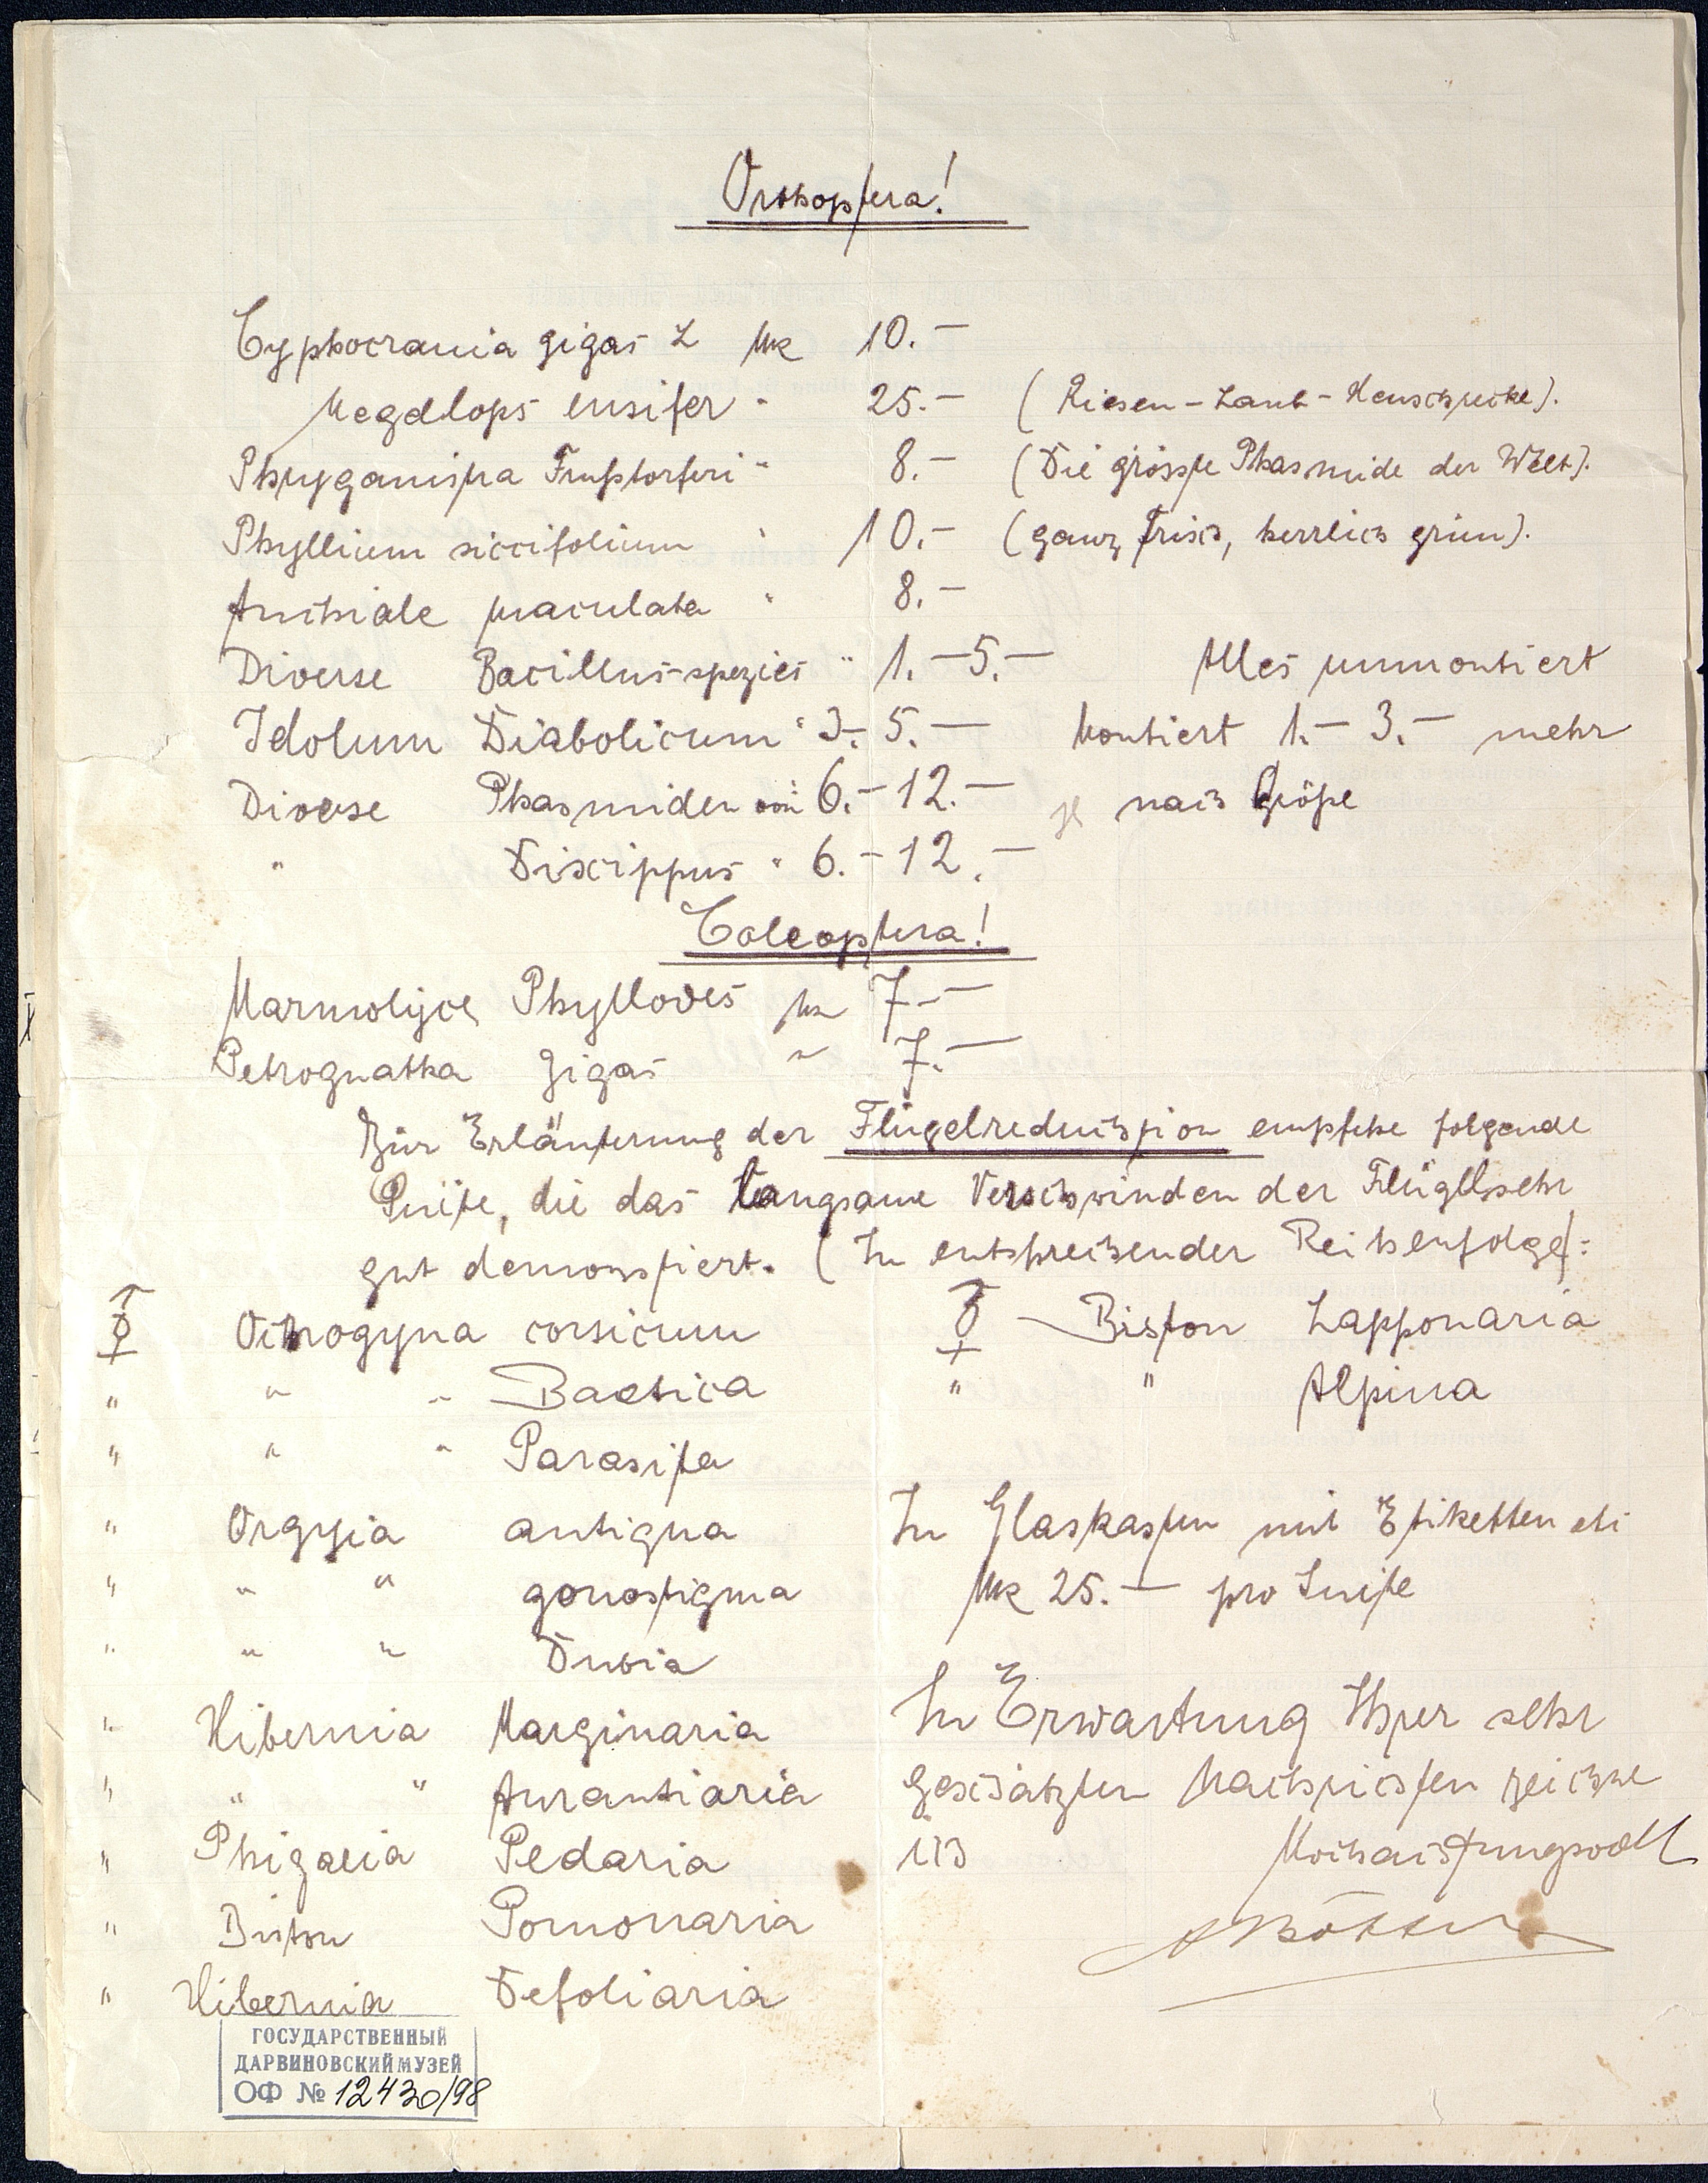 Orthoptera!
Cyphocrania gigas L Mk 10.—
Megalops ensifer " 25.— (Riesen-Laub-Heuschrecke).
Phryganistria Fruhstorferi " 8.— (Die grösste Phasmide der Welt).
Phyllium siccifolium " 10.— (ganz frisch, herrlich grün).
Anchiale maculata " 8.—
Diverse Bacillus-spezies " 1.—5.— Alles unmontiert
Idolum Diabolicum " 3.— 5.— Montiert 1.— 3.— mehr
Diverse Phasmiden von 6.—12.— je nach Größe
" Dixippus " 6.—12.—
Coleoptera!
Mormolyce Phyllodes Mk 7.—
Petrognatha Gigas " 7.—
Zur Erläuterung der Flügelreduchtion empfehe folgende
Suite, die das langsame Verschwinden der Flügel sehr
gut demonstiert. (In entsprechender Reihenfolge):
⚦ Ocnogyna corsicum ⚦ Biston Lapponaria
" " " Baetica " " Alpina
" " " Parasita
" Orgyia antiqua In Glaskasten mit Etiketten etc
" " " gonostigma Mk 25.— pro Suite
" " " Dubia
" Hibernia Marginaria In Erwartung Ihrer sehr
" " " Aurantiaria geschätzten Nachrichten zeichne
" Phigalia Pedaria ich Hochachtungsvoll
" Biston Pomonaria A Böttcher
" Hibernia Defoliaria
ГОСУДАРСТВЕННЫЙ
ДАРВИНОВСКИЙ МУЗЕЙ
ОФ № 12430/98